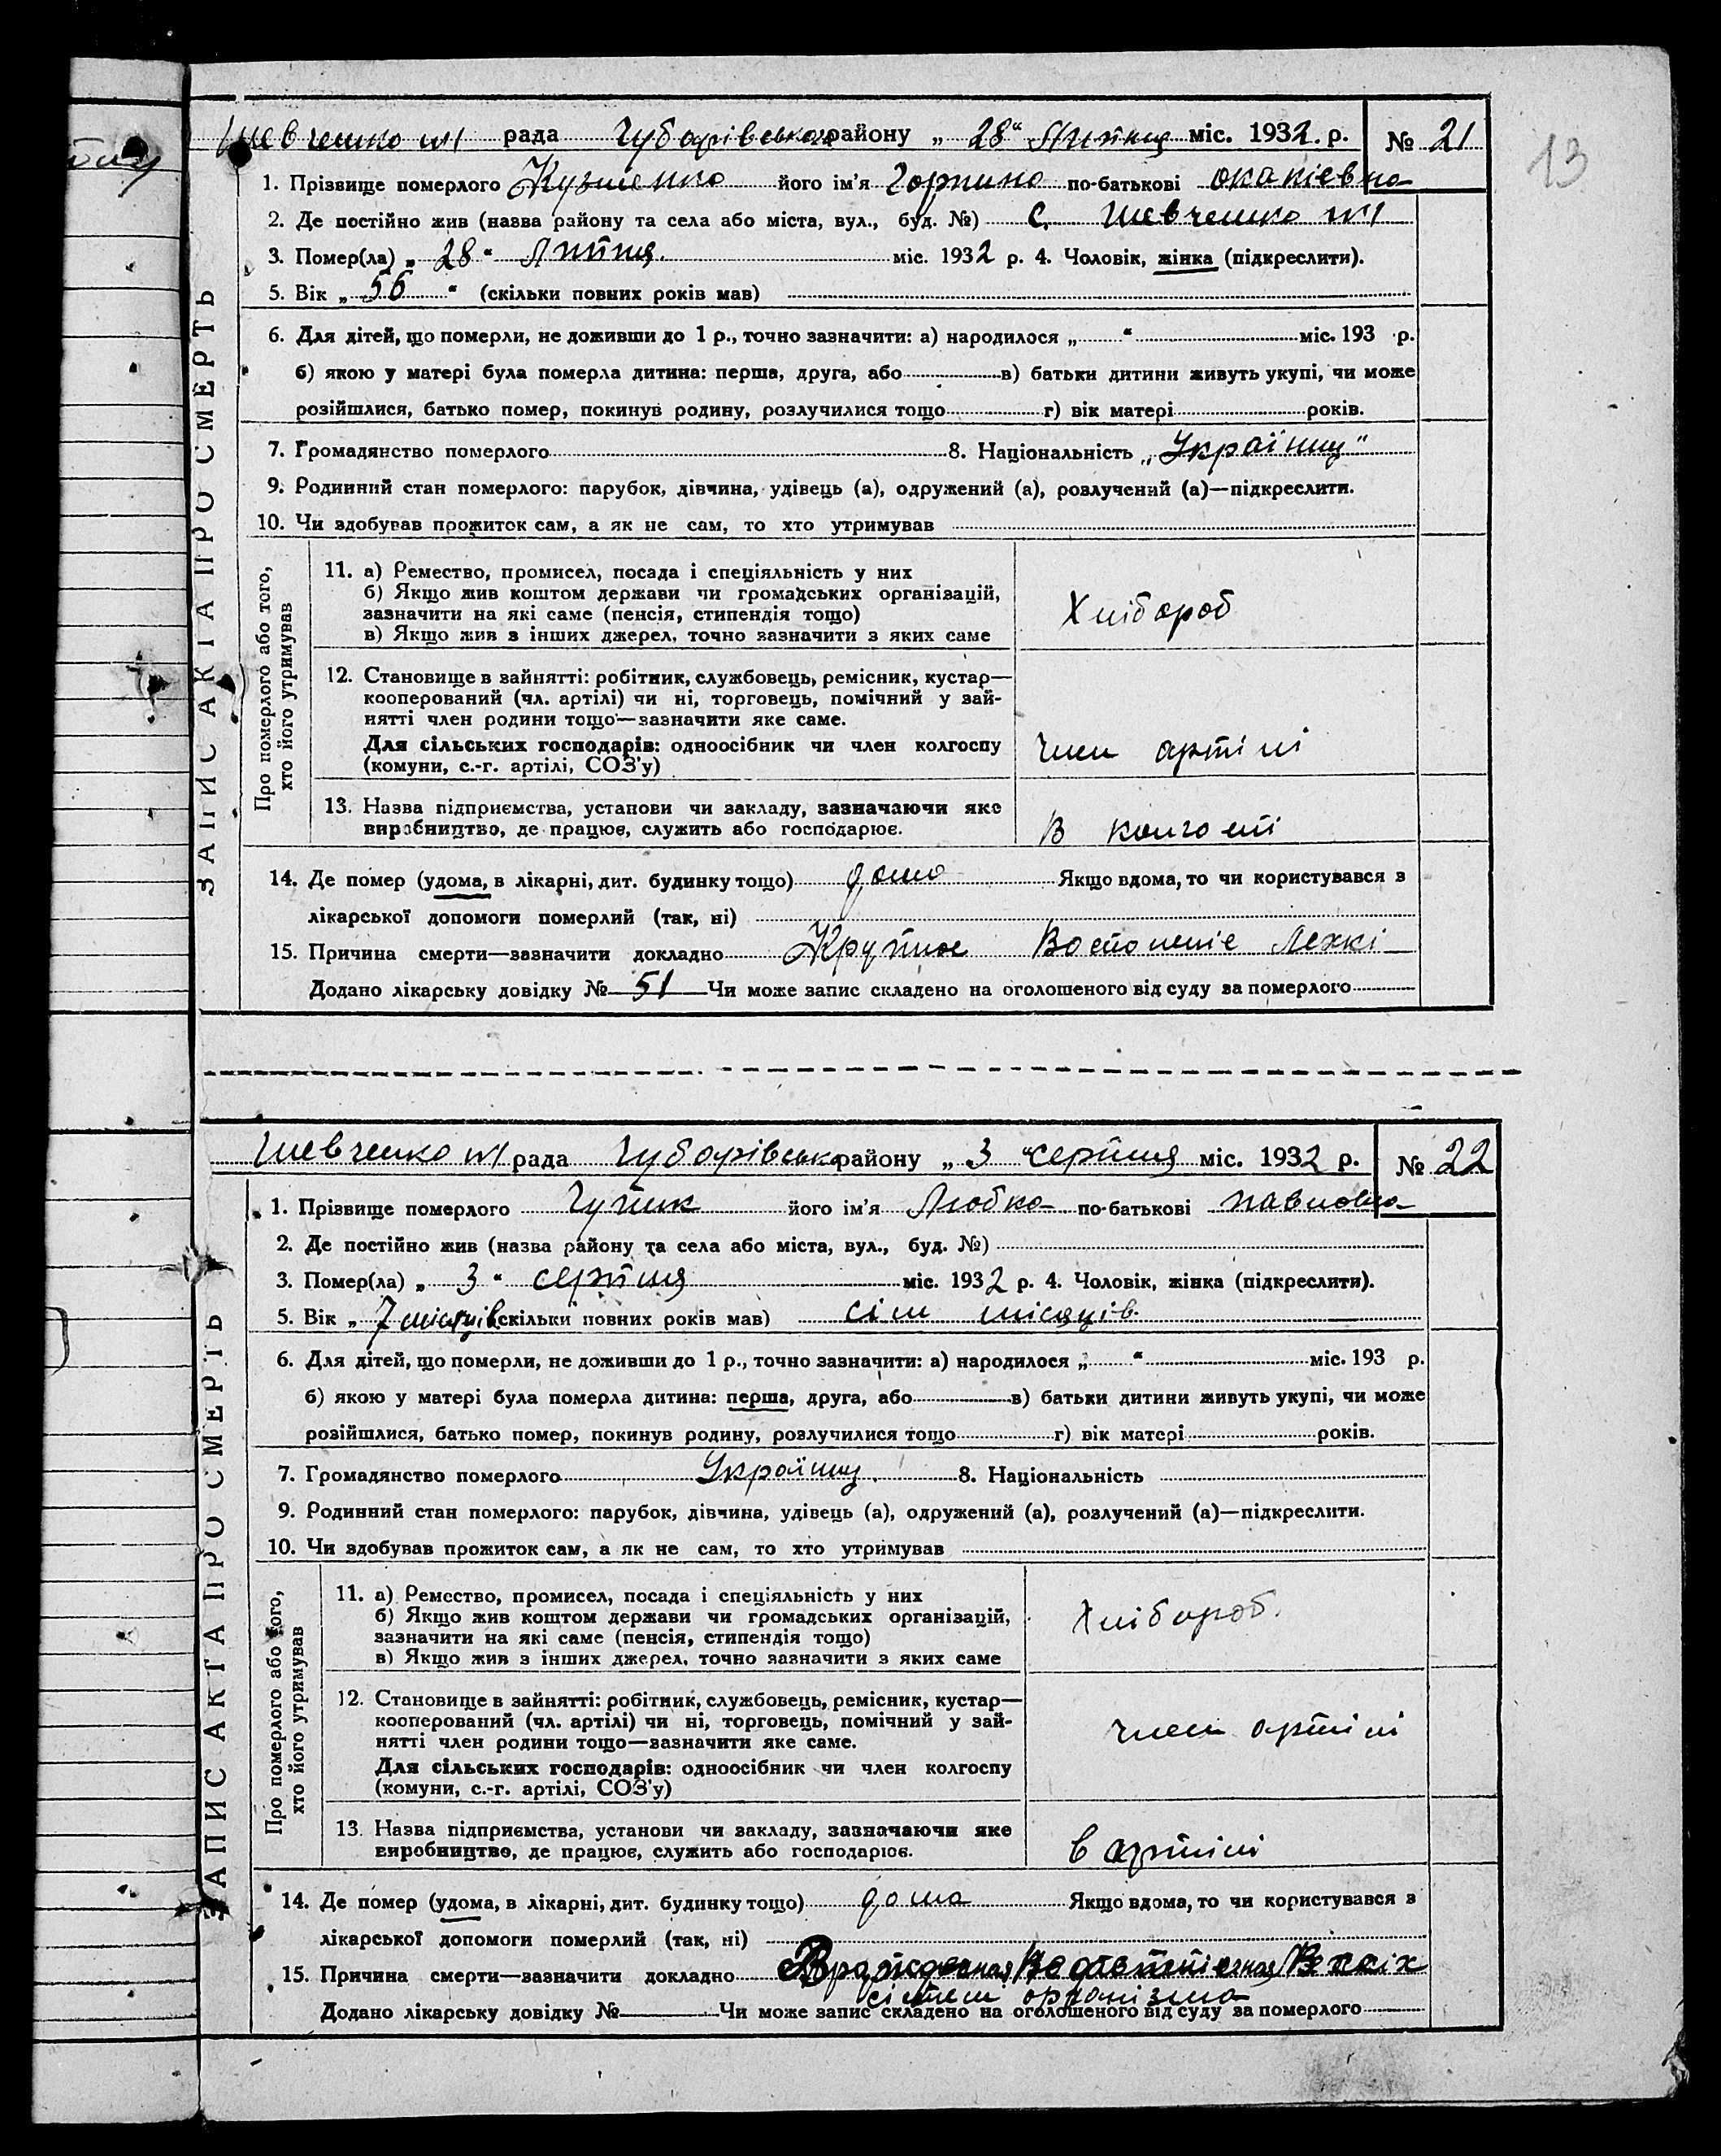 13
Шевченко №1 рада Чубарівського району „ 28 “ Липня міс. 1932 р. № 21
1. Прізвище померлого Кузменко його ім'я Горпина по-батькові окакіевна
2. Де постійно жив (назва району та села або міста, вул., буд. №) С. Шевченко №1
3. Помер(ла) „ 28 “ Липня міс. 1932 р. 4. Чоловік, жінка (підкреслити).
5. Вік „ 56 “ (скільки повних років мав)
6. Для дітей, що померли, не доживши до 1 р., точно зазначити: а) народилося „ “ міс. 193 р.
б) якою у матері була померла дитина: перша, друга, або в) батьки дитини живуть укупі, чи може
розійшлися, батько помер, покинув родину, розлучилися тощо г) вік матері років.
7. Громадянство померлого 8. Національність „Українц“
9. Родинний стан померлого: парубок, дівчина, удівець (а), одружений (а), розлучений (а)—підкреслити.
10. Чи здобував прожиток сам, а як не сам, то хто утримував
Про померлого або того,
хто його утримував
11. а) Ремество, промисел, посада і спеціяльність у них
б) Якщо жив коштом держави чи громадських організацій,
зазначити на які саме (пенсія, стипендія тощо)
в) Якщо жив з інших джерел, точно зазначити з яких саме
Хлібороб
12. Становище в зайнятті: робітник, службовець, ремісник, кустар—
кооперований (чл. артілі) чи ні, торговець, помічний у зай-
нятті член родини тощо—зазначити яке саме.
Для сільських господарів: одноосібник чи член колгоспу
(комуни, с.-г. артілі, СОЗ'у)
член артілі
13. Назва підприємства, установи чи закладу, зазначаючи яке
виробництво, де працює, служить або господарює.
В
14. Де помер (удома, в лікарні, дит. будинку тощо) дома Якщо вдома, то чи користувався з
лікарської допомоги померлий (так, ні)
15. Причина смерти—зазначити докладно Крупное Лехкі
Додано лікарську довідку № 51 Чи може запис складено на оголошеного від суду за померлого
ЗАПИС АКТА ПРО СМЕРТЬ
Шевченко №1 рада Чубарівського району „ 3 “ серпня міс. 1932 р. № 22
1. Прізвище померлого Чупик його ім'я Любка по-батькові павловна
2. Де постійно жив (назва району та села або міста, вул., буд. №)
3. Помер(ла) „ 3 “ серпня міс. 1932 р. 4. Чоловік, жінка (підкреслити).
5. Вік „ 7 місяців (скільки повних років мав) сім місяців
6. Для дітей, що померли, не доживши до 1 р., точно зазначити: а) народилося „ “ міс. 193 р.
б) якою у матері була померла дитина: перша, друга, або в) батьки дитини живуть укупі, чи може
розійшлися, батько помер, покинув родину, розлучилися тощо г) вік матері років.
7. Громадянство померлого Українц. 8. Національність
9. Родинний стан померлого: парубок, дівчина, удівець (а), одружений (а), розлучений (а)—підкреслити.
10. Чи здобував прожиток сам, а як не сам, то хто утримував
Про померлого або того,
хто його утримував
11. а) Ремество, промисел, посада і спеціяльність у них
б) Якщо жив коштом держави чи громадських організацій,
зазначити на які саме (пенсія, стипендія тощо)
в) Якщо жив з інших джерел, точно зазначити з яких саме
Хлібороб.
12. Становище в зайнятті: робітник, службовець, ремісник, кустар—
кооперований (чл. артілі) чи ні, торговець, помічний у зай-
нятті член родини тощо—зазначити яке саме.
Для сільських господарів: одноосібник чи член колгоспу
(комуни, с.-г. артілі, СОЗ'у)
член артілі
13. Назва підприємства, установи чи закладу, зазначаючи яке
виробництво, де працює, служить або господарює.
в артілі
14. Де помер (удома, в лікарні, дит. будинку тощо) дома Якщо вдома, то чи користувався з
лікарської допомоги померлий (так, ні)
15. Причина смерти—зазначити докладно Врожденная
сістем організма
Додано лікарську довідку № Чи може запис складено на оголошеного від суду за померлого
ЗАПИС АКТА ПРО СМЕРТЬ